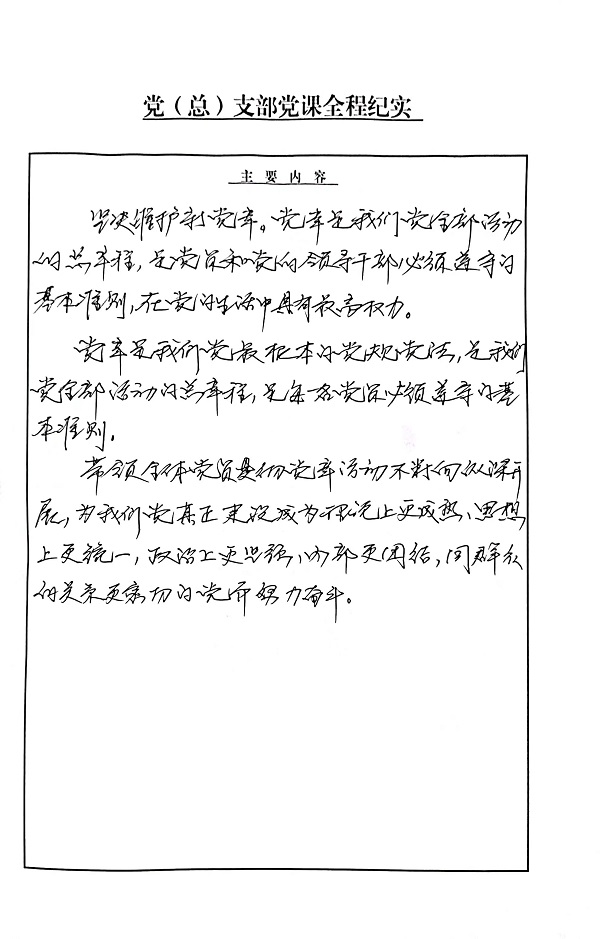 党（总）支部党课全程纪实
主要内容
坚决维护新党章。党章是我们党全部活动
的总章程，是党员和党的领导干部必须遵守的
基本准则，在党的生活中具有最高权力。
党章是我们党最根本的党规党法，是我们
党全部活动的总章程，是每名党员必须遵守的基
本准则。
带领全体党员具彻党章活动不断向纵深开
展，为我们党真正建设成为理论上更成熟、思想
上更统一，政治上更坚强、内部更团结，同群众
的关系更密切的党而努力奋斗。